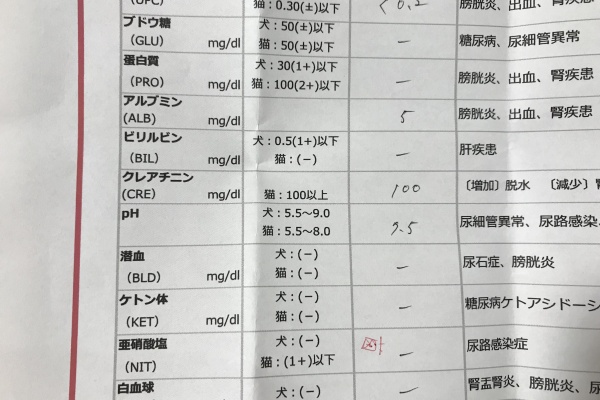 (UPC) 猫：0.30(±)以下 <0.2 膀胱炎、出血、腎疾患
ブドウ糖 犬：50(±)以下
(GLU) mg/dl 猫：50(±)以下 － 糖尿病、尿細管異常
蛋白質 犬：30(1+)以下
(PRO) mg/dl 猫：100(2+)以下 － 膀胱炎、出血、腎疾患
アルブミン
(ALB) mg/dl 5 膀胱炎、出血、腎疾患
ビリルビン 犬：0.5(1+)以下
(BIL) mg/dl 猫：(－) － 肝疾患
クレアチニン
(CRE) mg/dl 猫：100以上 100 〔増加〕脱水 〔減少〕腎
pH 犬：5.5～9.0
猫：5.5～8.0 尿細管異常、尿路感染
潜血 犬：(－)
(BLD) mg/dl 猫：(－) － 尿石症、膀胱炎
ケトン体 犬：(－)
(KET) mg/dl 猫：(－) － 糖尿病ケトアシドーシ
亜硝酸塩 犬：(－)
(NIT) 猫：(1+)以下 － 尿路感染症
白血球 犬：(－) － 腎盂腎炎、膀胱炎、尿